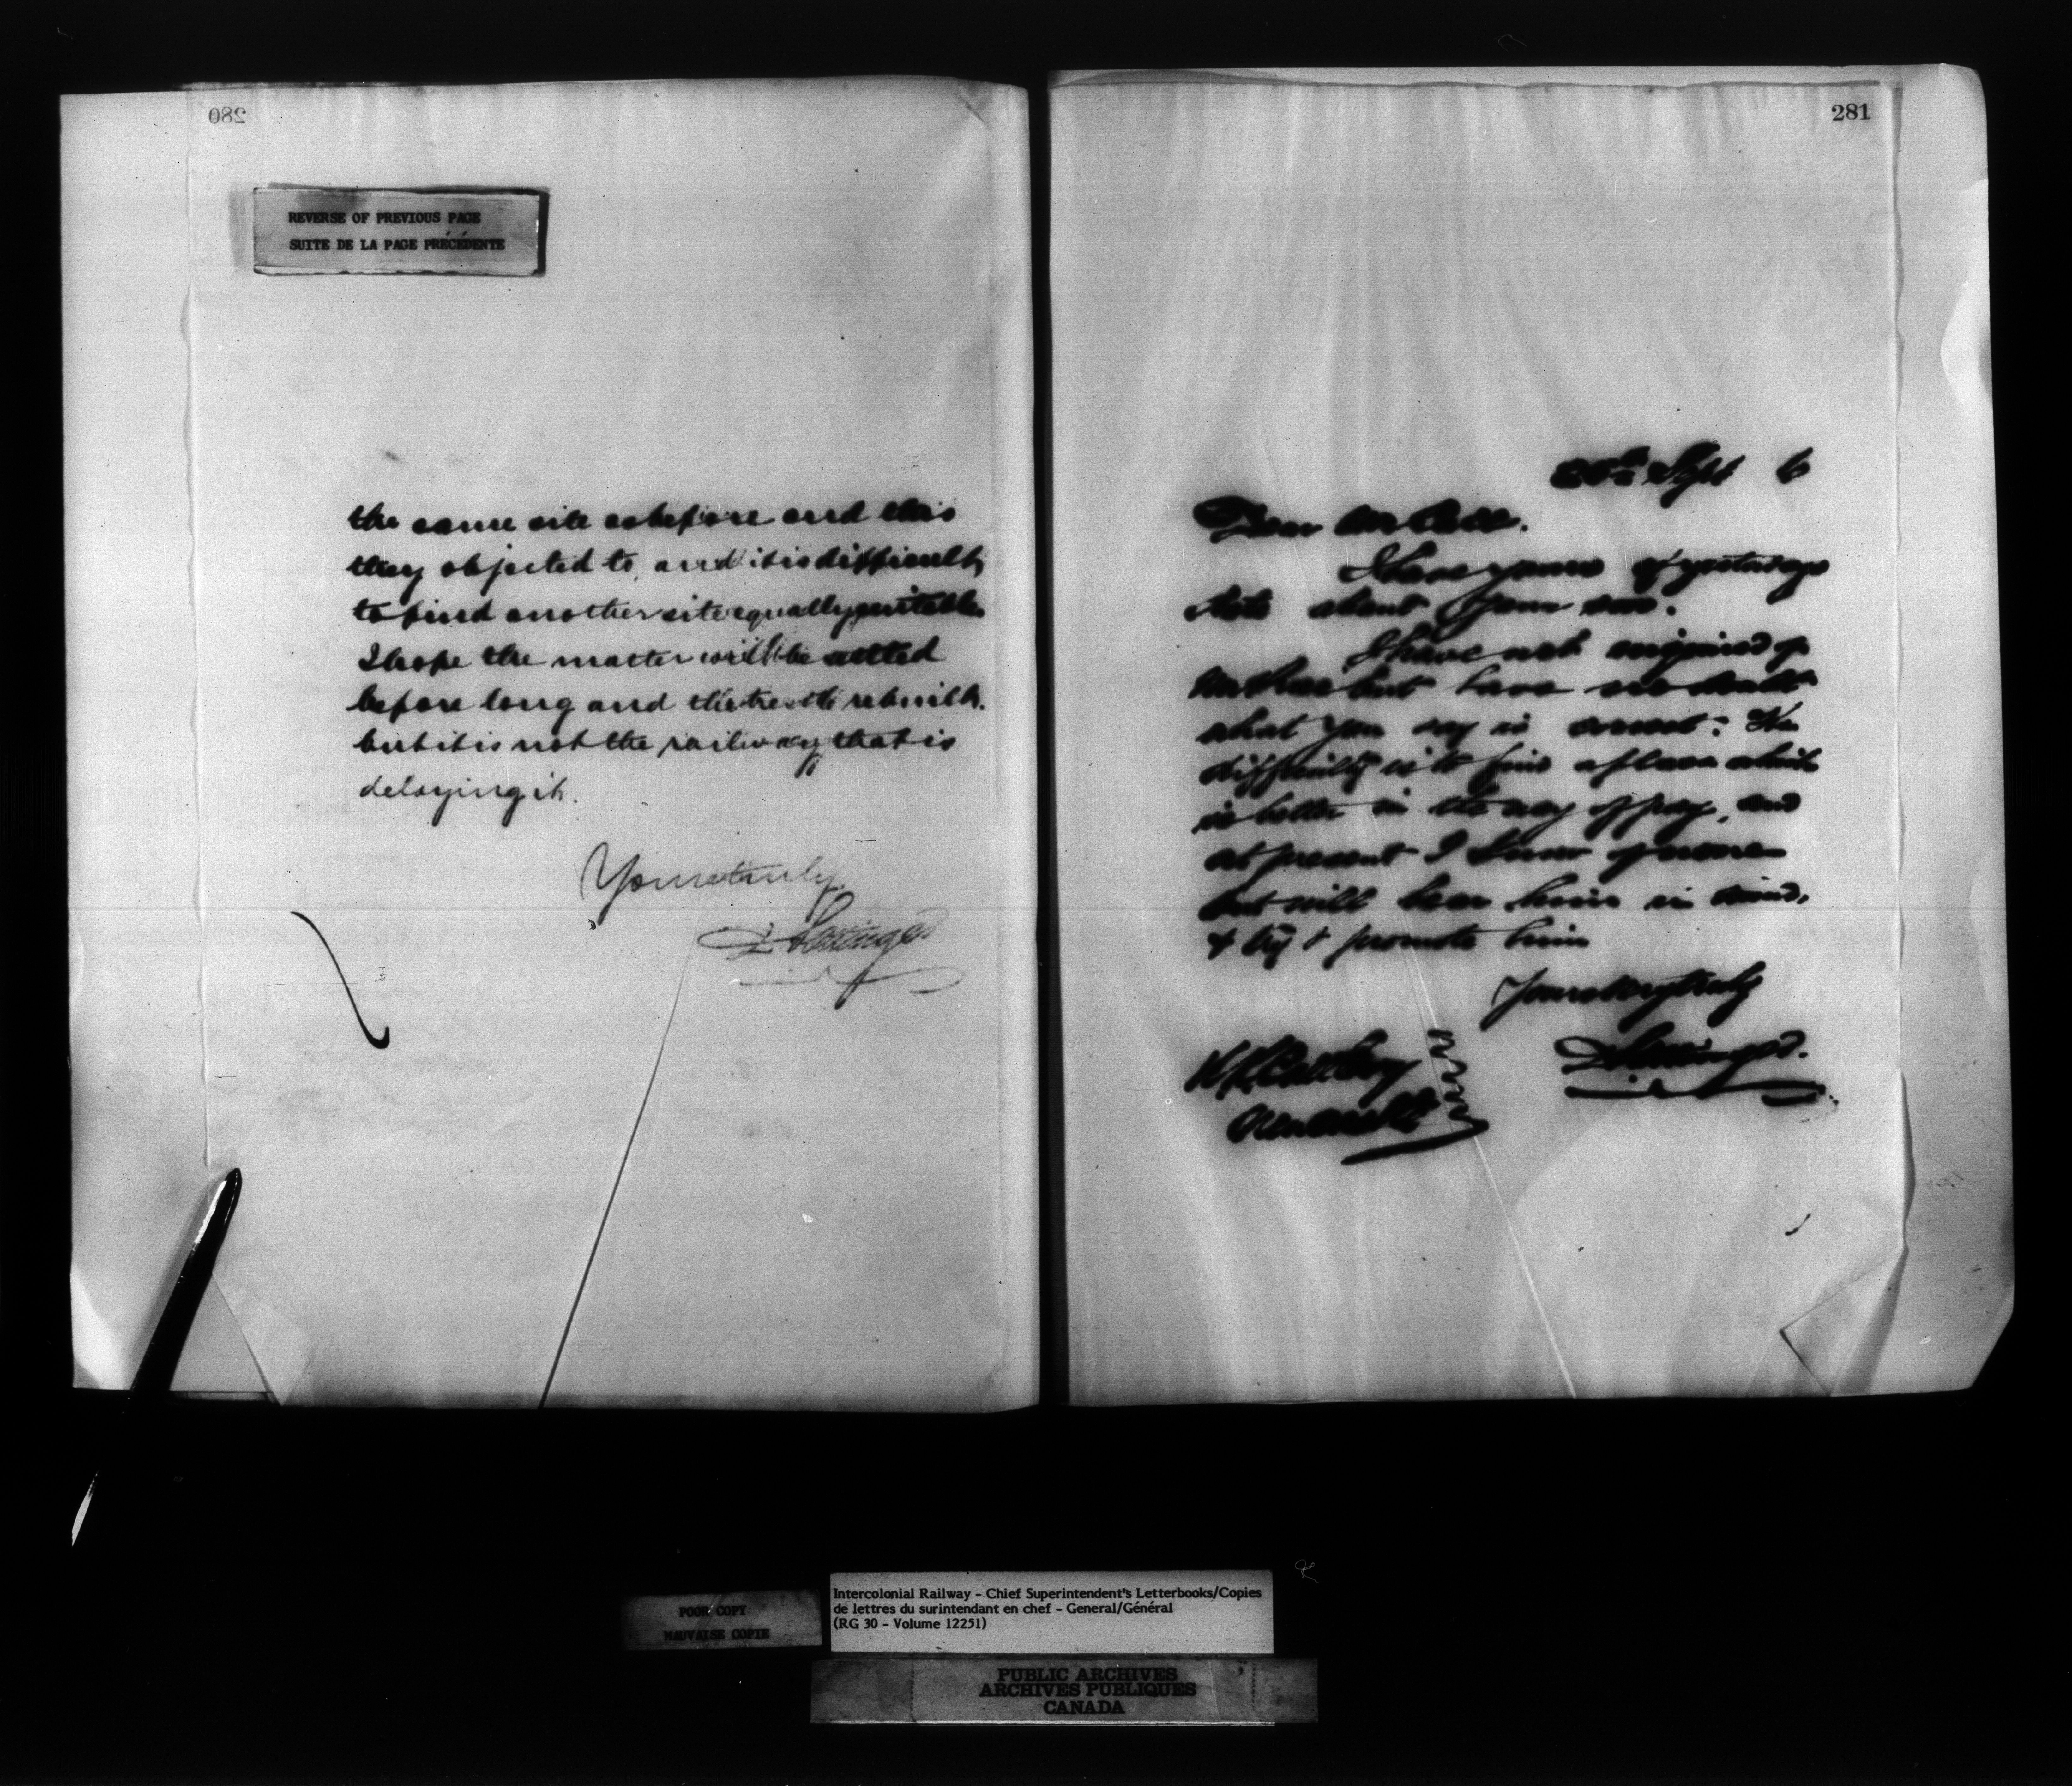 280
REVERSE OF PREVIOUS PAGE
SUITE DE LA PAGE PRÉCÉDENTE
the same site as before and this
they objected to, and it is difficult
to find another site equally suitable
I hope the matter will be settled
before long and the trestle rebuilt.
but it is not the railway that is
delaying it.
Yours truly
D Pottinger
281
26th Sept 6
Dear
I have yours of yesterdays
date about your son.
I have not enquired of
but have no doubt
what you say is correct: the
difficulty is to find a place which
is better in the way of pay, and
at present I know of none
but will bear him in mind,
& try & promote him
Yours very truly
D Pottinger.
POOR COPY
MAUVAISE COPIE
Intercolonial Railway - Chief Superintendent's Letterbooks/Copies
de lettres du surintendant en chef - General/Général
(RG 30 - Volume 12251)
PUBLIC ARCHIVES
ARCHIVES PUBLIQUES
CANADA